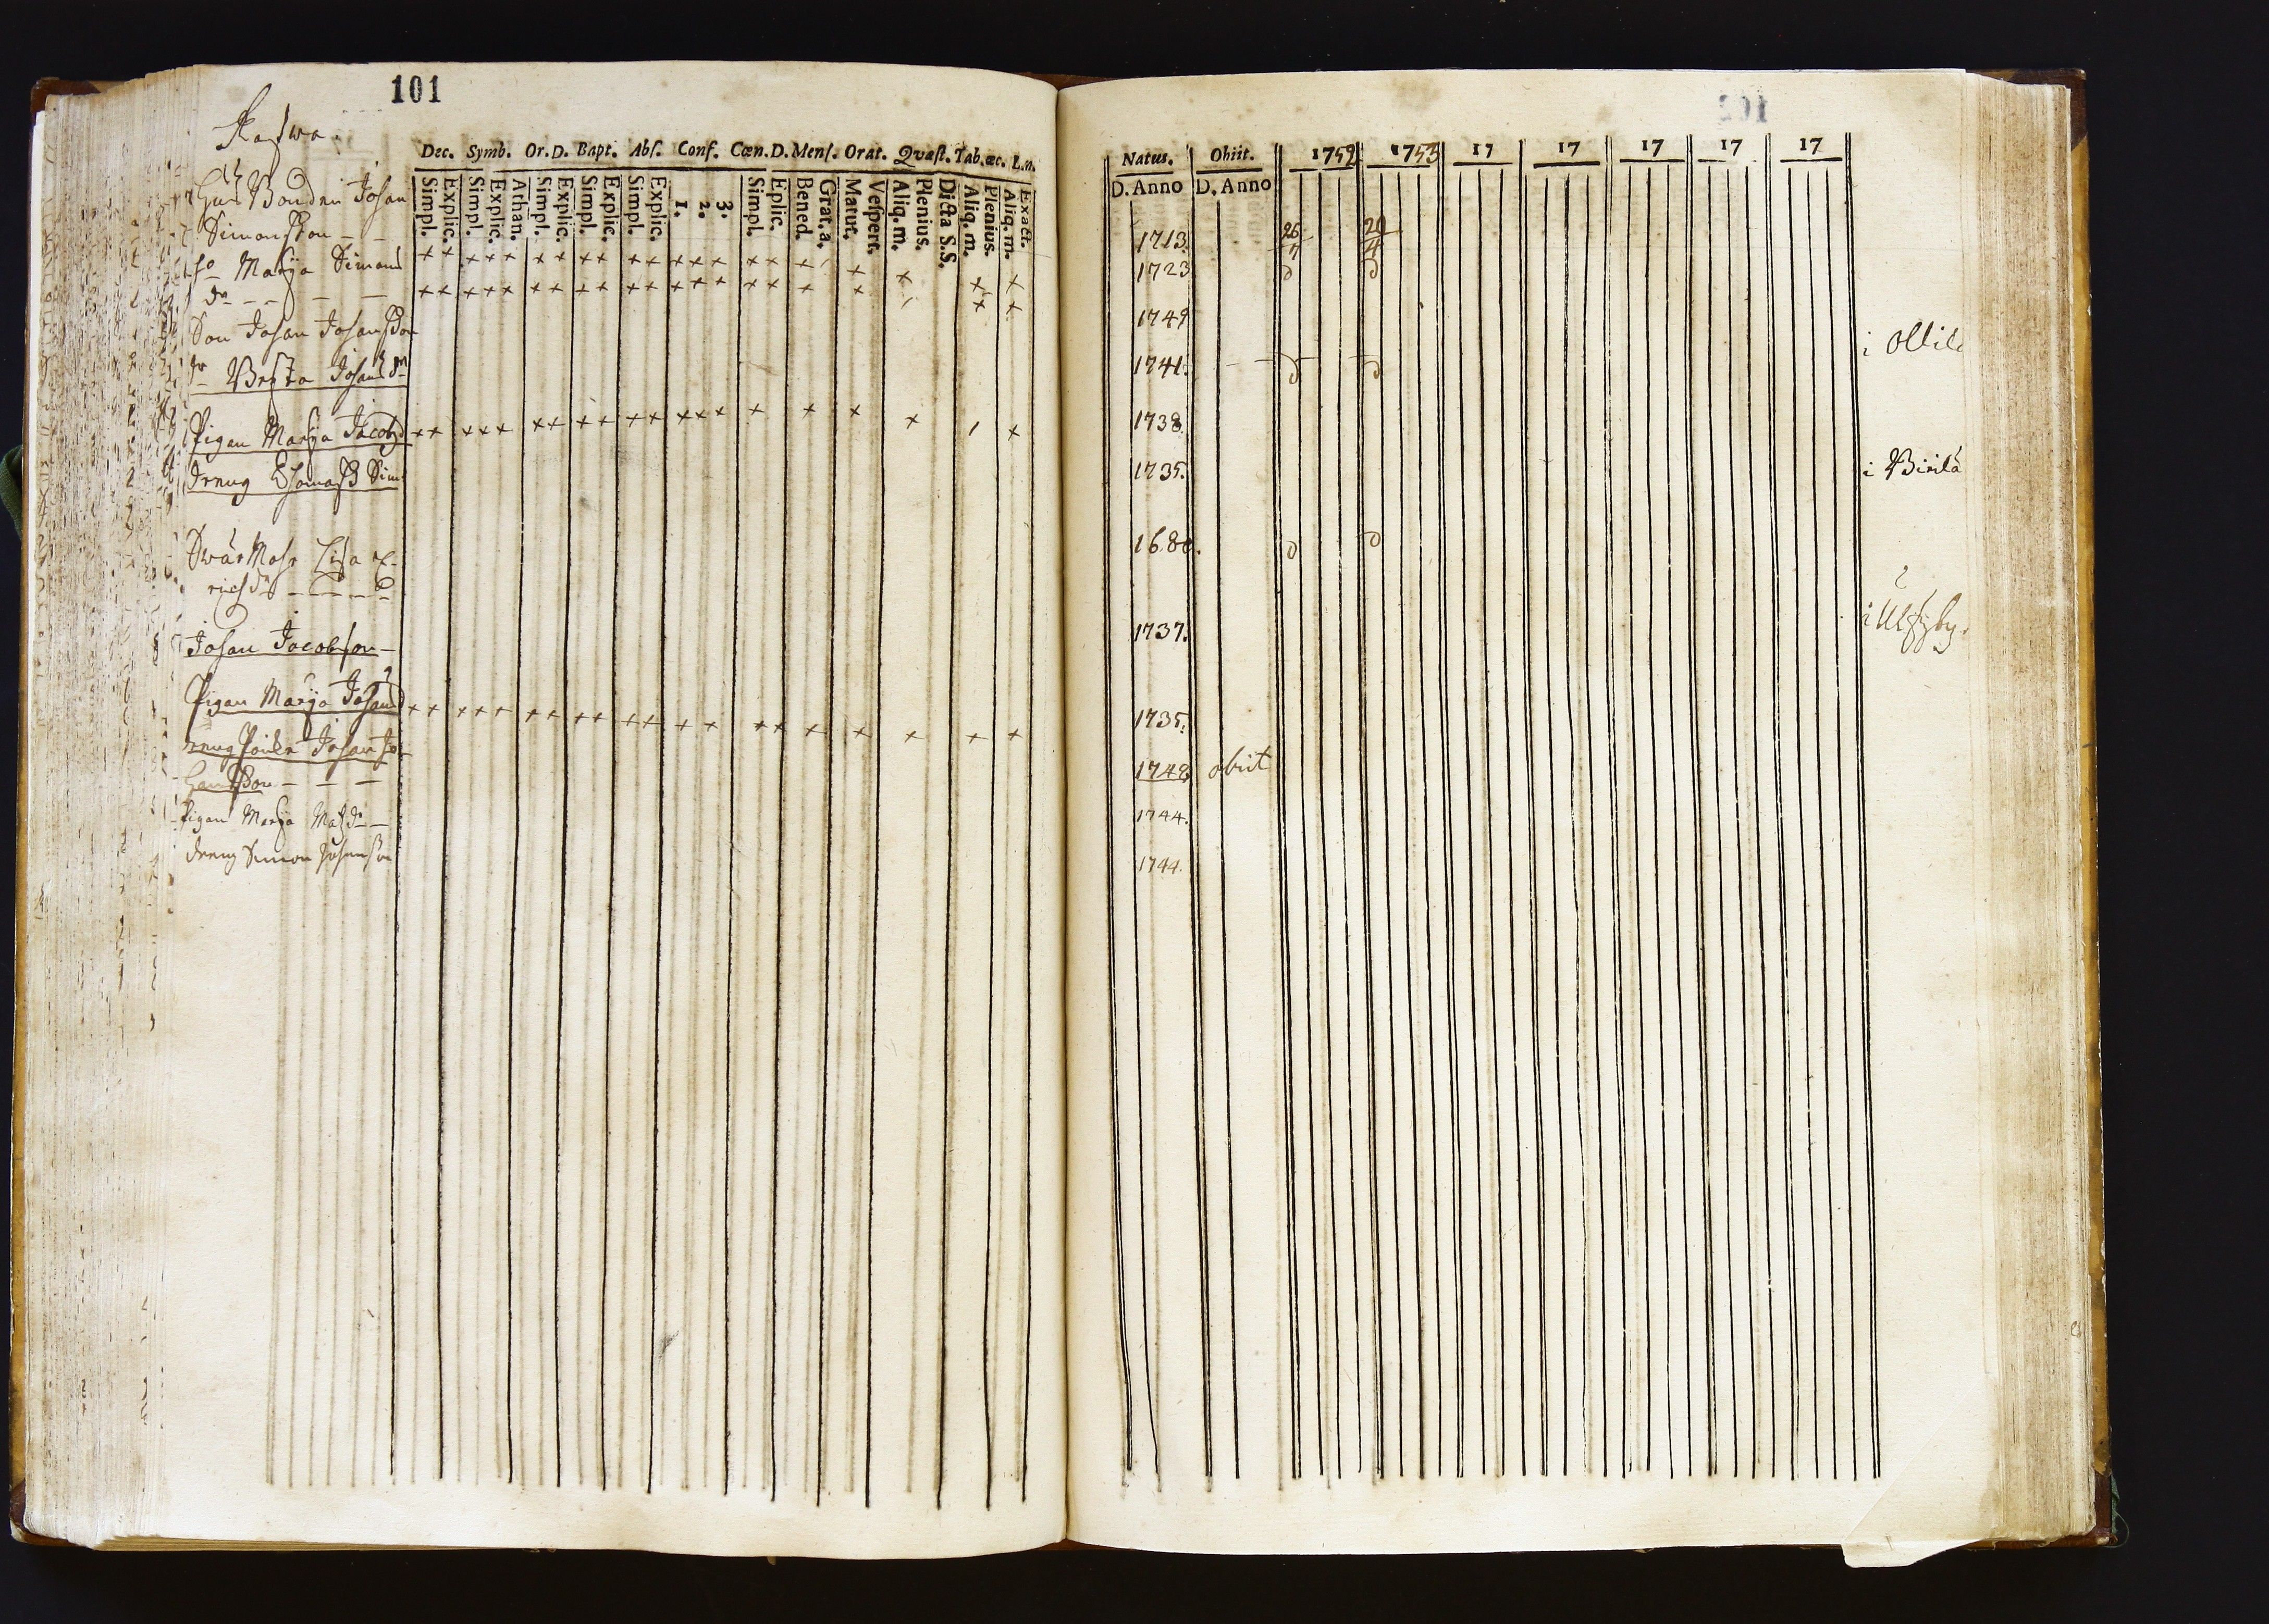 101
Dec. Symb. Or. D. Bapt. Abſ. Conf. Cœn. D. Menſ. Orat. Quæſt. Tab. œc. L.n.
Simpl. Explic. Simpl. Explic. Athan. Simpl. Explic. Simpl. Explic. Simpl. Explic. 1. 2. 3. Simpl. Eplic. Bened. Grat. a. Matut. Veſpert. Aliq. m. Plenius. Dicta S.S. Aliq. m. Plenius. Aliq. m. Exact.
Bonden Johan
Simonsson
Marja Simons
dr
Son Johan Johansson
dr Johans dr
Pigan Marja Jacobsd
Dreng Thomas Sim
Swär Mohr Lisa E-
richsdr
Johan Jacobsson
Pigan Marja Johansd
Johan Jo-
hansson
Pigan Marja Matsdr
Dreng Simon Johansson
Natus. Obiit. 1752 1753 17 17 17 17 17
D. Anno D. Anno
1713. 26 7 29 4
1723
1749
1741.
1738.
1735. i Birilä
1680.
1737.
1735.
1748 obiit
1744.
1744.